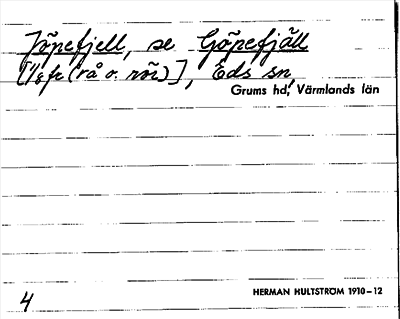 Jöpefjell, se Göpefjäll
[1/8 fr (rå o. röi)], Eds sn,
Grums hd, Värmlands län
HERMAN HULTSTRÖM 1910–12
4